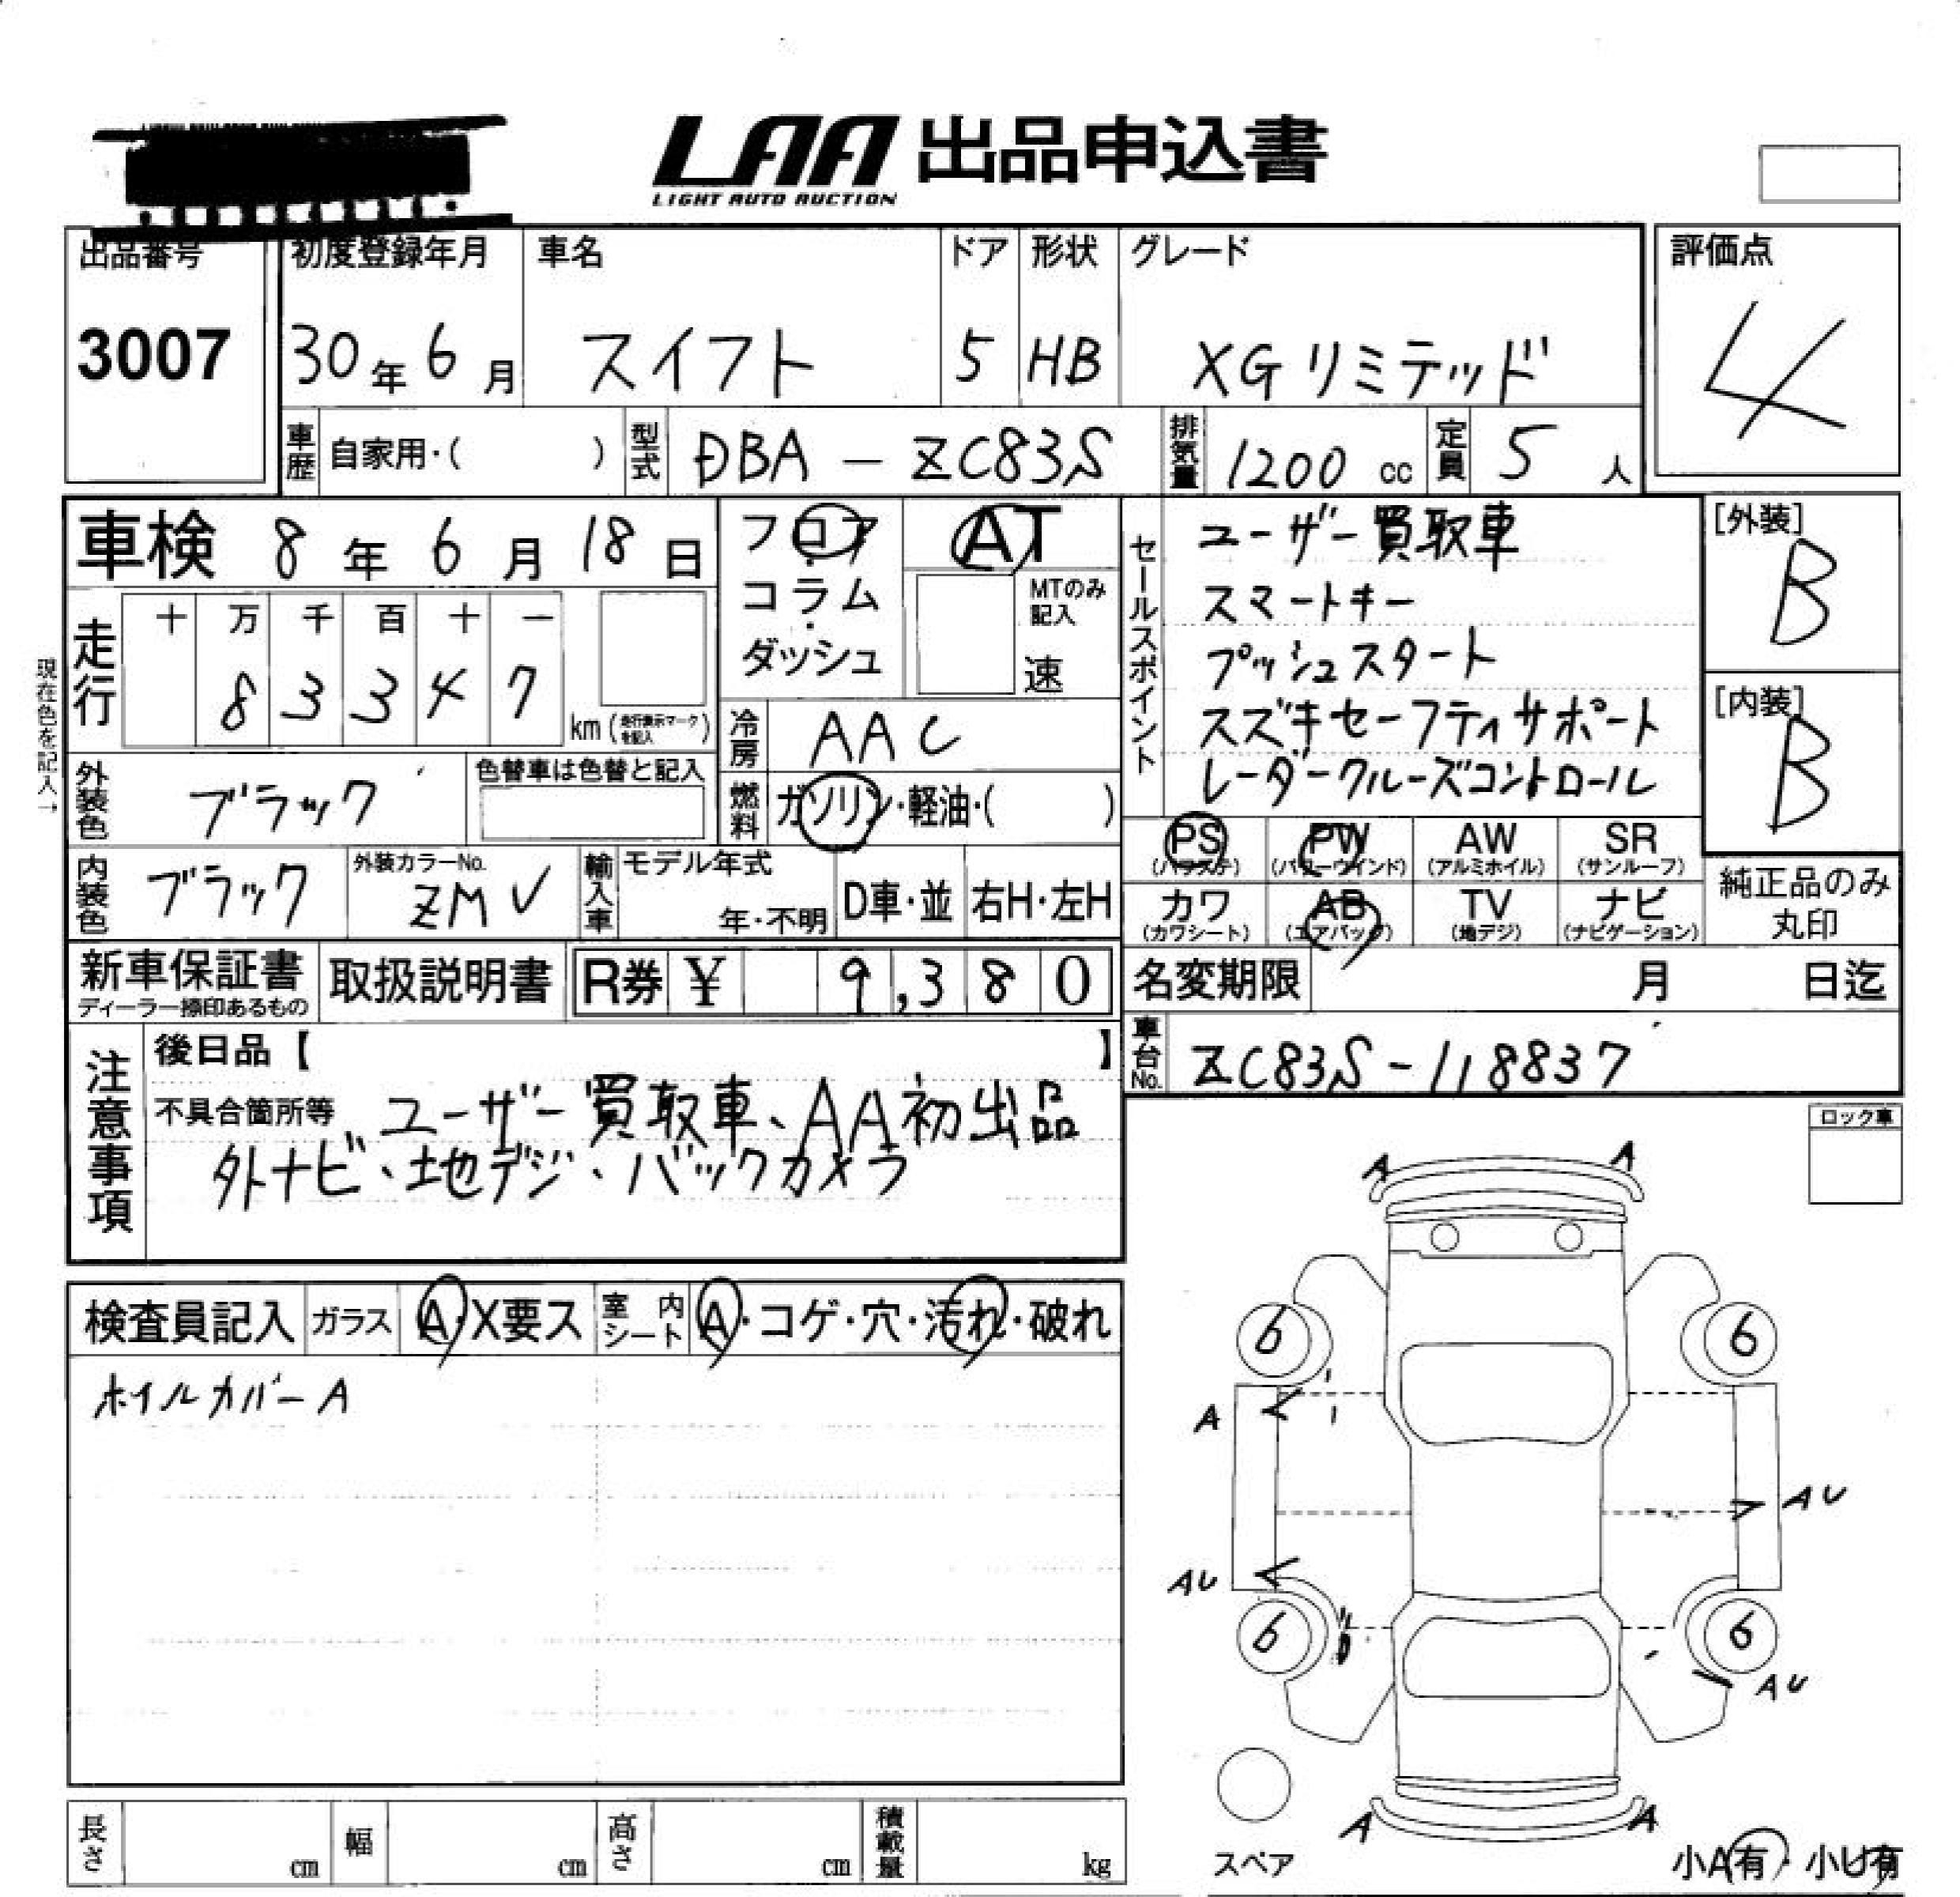 LAA 出品申込書
LIGHT AUTO AUCTION
出品番号 初度登録年月 車名 ドア 形状 グレード 評価点
3007 30年6月 スイフト 5 HB XGリミテッド 4
車歴 自家用・( ) 型式 DBA-ZC83S 排気量 1200 cc 定員 5 人
車検 8年6月18日
フロア・コラム・ダッシュ
AT
MTのみ記入
速
走行 十 万 千 百 十 一
8 3 3 4 7 km (走行表示マークを記入)
現在色を記入→
冷房 AAC
燃料 ガソリン・軽油・( )
外装色 ブラック 色替車は色替と記入
内装色 ブラック 外装カラーNo. ZMV 輸入車 モデル年式 年・不明 D車・並 右H・左H
セールスポイント
ユーザー買取車
スマートキー
プッシュスタート
スズキセーフティサポート
レーダークルーズコントロール
[外装] B
[内装] B
PS (パワステ) PW (パワーウインド) AW (アルミホイル) SR (サンルーフ)
カワ (カワシート) AB (エアバッグ) TV (地デジ) ナビ (ナビゲーション)
純正品のみ丸印
新車保証書 ディーラー捺印あるもの 取扱説明書 R券 ¥ 9,380
名変期限 月 日迄
車台No. ZC83S-118837
注意事項
後日品【 】
不具合箇所等 ユーザー買取車、AA初出品
外ナビ・地デジ・バックカメラ
ロック車
検査員記入 ガラス A・X要ス 室内シート A・コゲ・穴・汚れ・破れ
ホイルカバーA
A A
6 6
A
AU
AU
6 6
AU
A A
スペア
小A有・小U有
長さ cm 幅 cm 高さ cm 積載量 kg